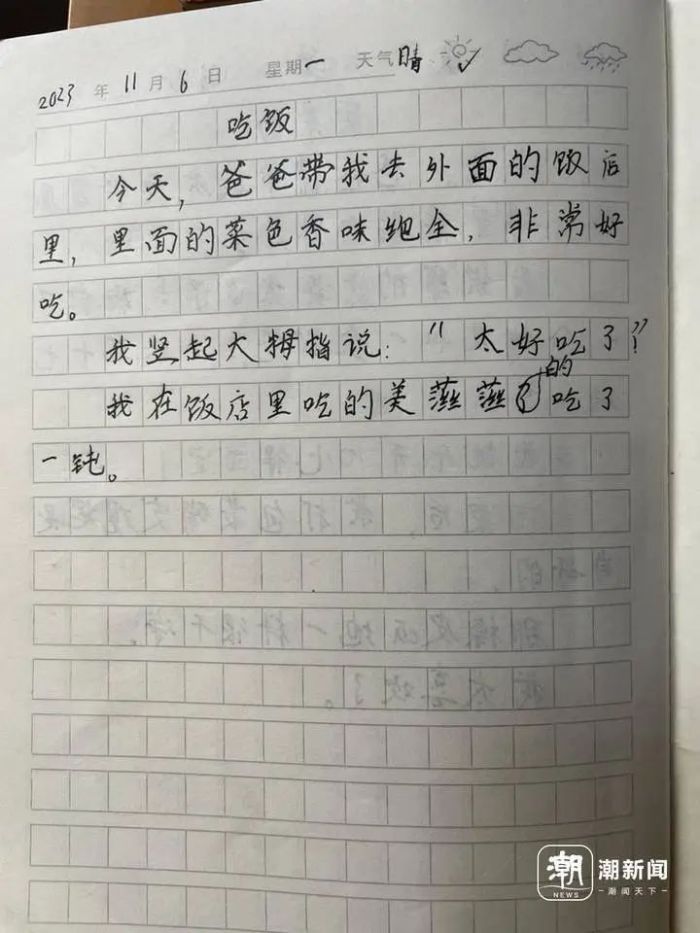 2023年11月6日 星期一 天气晴
吃饭
今天，爸爸带我去外面的饭店
里，里面的菜色香味绝全，非常好
吃。
我竖起大拇指说："太好吃了！"
我在饭店里吃的美蕬蕬的吃了
一钝。
潮 NEWS 潮新闻
潮闻天下